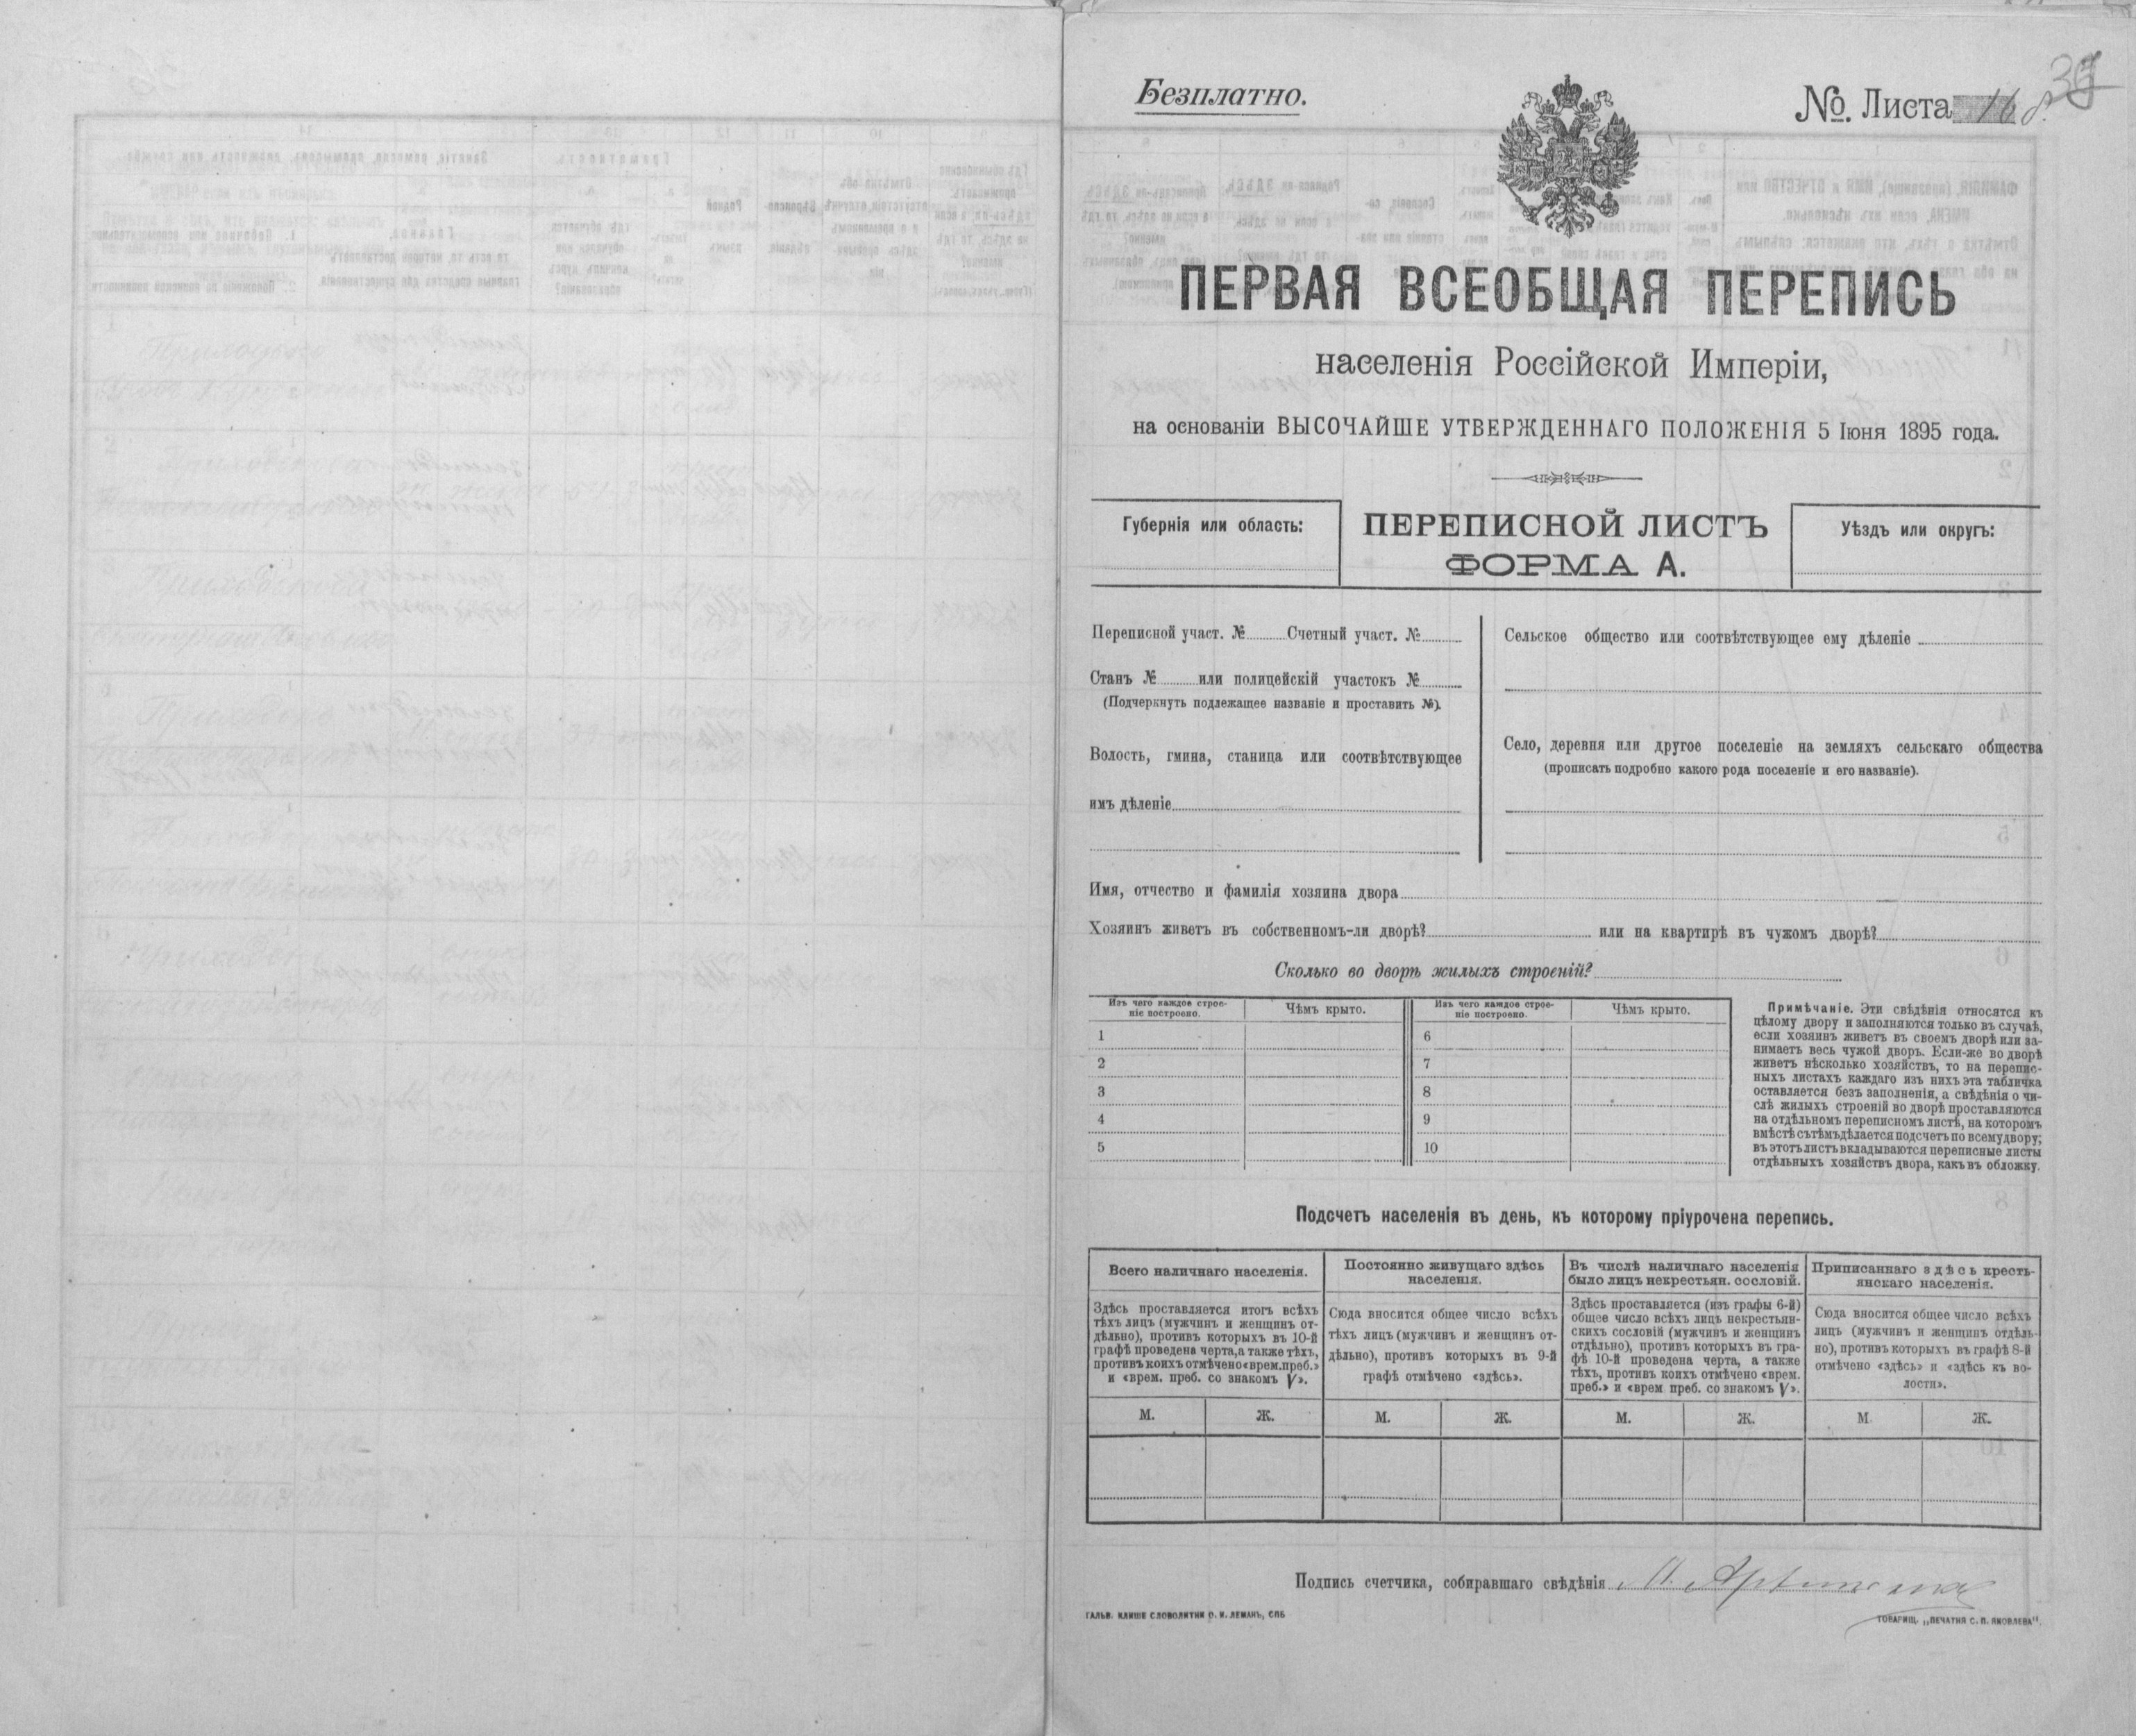 Безплатно.
№. Листа 16 б.
ПЕРВАЯ ВСЕОБЩАЯ ПЕРЕПИСЬ
населенія Россійской Имперіи,
на основаніи ВЫСОЧАЙШЕ УТВЕРЖДЕННАГО ПОЛОЖЕНІЯ 5 Іюня 1895 года.
Губернія или область:
ПЕРЕПИСНОЙ ЛИСТЪ
ФОРМА А.
Уѣздъ или округъ:
Переписной участ. № Счетный участ. №
Станъ № или полицейскій участокъ №
(Подчеркнуть подлежащее названіе и проставить №).
Волость, гмина, станица или соотвѣтствующее
имъ дѣленіе
Сельское общество или соотвѣтствующее ему дѣленіе
Село, деревня или другое поселеніе на земляхъ сельскаго общества
(прописать подробно какого рода поселеніе и его названіе).
Имя, отчество и фамилія хозяина двора
Хозяинъ живетъ въ собственномъ-ли дворѣ? или на квартирѣ въ чужомъ дворѣ?
Сколько во дворѣ жилыхъ строеній?
Изъ чего каждое строе-
ніе построено.
Чѣмъ крыто.
Изъ чего каждое строе-
ніе построено.
Чѣмъ крыто.
1
2
3
4
5
6
7
8
9
10
Примѣчаніе. Эти свѣдѣнія относятся къ
цѣлому двору и заполняются только въ случаѣ,
если хозяинъ живетъ въ своемъ дворѣ или за-
нимаетъ весь чужой дворъ. Если-же во дворѣ
живетъ нѣсколько хозяйствъ, то на перепис-
ныхъ листахъ каждаго изъ нихъ эта табличка
оставляется безъ заполненія, а свѣдѣнія о чи-
слѣ жилыхъ строеній во дворѣ проставляются
на отдѣльномъ переписномъ листѣ, на которомъ
вмѣстѣ съ тѣмъ дѣлается подсчетъ по всему двору;
въ этотъ листъ вкладываются переписные листы
отдѣльныхъ хозяйствъ двора, какъ въ обложку.
Подсчетъ населенія въ день, къ которому пріурочена перепись.
Всего наличнаго населенія.
Здѣсь проставляется итогъ всѣхъ
тѣхъ лицъ (мужчинъ и женщинъ от-
дѣльно), противъ которыхъ въ 10-й
графѣ проведена черта, а также тѣхъ,
противъ коихъ отмѣчено «врем. преб.»
и «врем. преб. со знакомъ V».
Постоянно живущаго здѣсь
населенія.
Сюда вносится общее число всѣхъ
тѣхъ лицъ (мужчинъ и женщинъ от-
дѣльно), противъ которыхъ въ 9-й
графѣ отмѣчено «здѣсь».
Въ числѣ наличнаго населенія
было лицъ некрестьян. сословій.
Здѣсь проставляется (изъ графы 6-й)
общее число всѣхъ лицъ некрестьян-
скихъ сословій (мужчинъ и женщинъ
отдѣльно), противъ которыхъ въ гра-
фѣ 10-й проведена черта, а также
тѣхъ, противъ коихъ отмѣчено «врем.
преб.» и «врем преб. со знакомъ V».
Приписаннаго здѣсь кресть-
янскаго населенія.
Сюда вносится общее число всѣхъ
лицъ (мужчинъ и женщинъ отдѣль-
но), противъ которыхъ въ графѣ 8-й
отмѣчено «здѣсь» и «здѣсь къ во-
лости».
М. Ж. М. Ж. М. Ж. М. Ж.
Подпись счетчика, собиравшаго свѣдѣнія
ГАЛЬВ. КЛИШЕ СЛОВОЛИТНИ О. И. ЛЕМАНЪ, СПБ
ТОВАРИЩ. „ПЕЧАТНЯ С. П. ЯКОВЛЕВА".